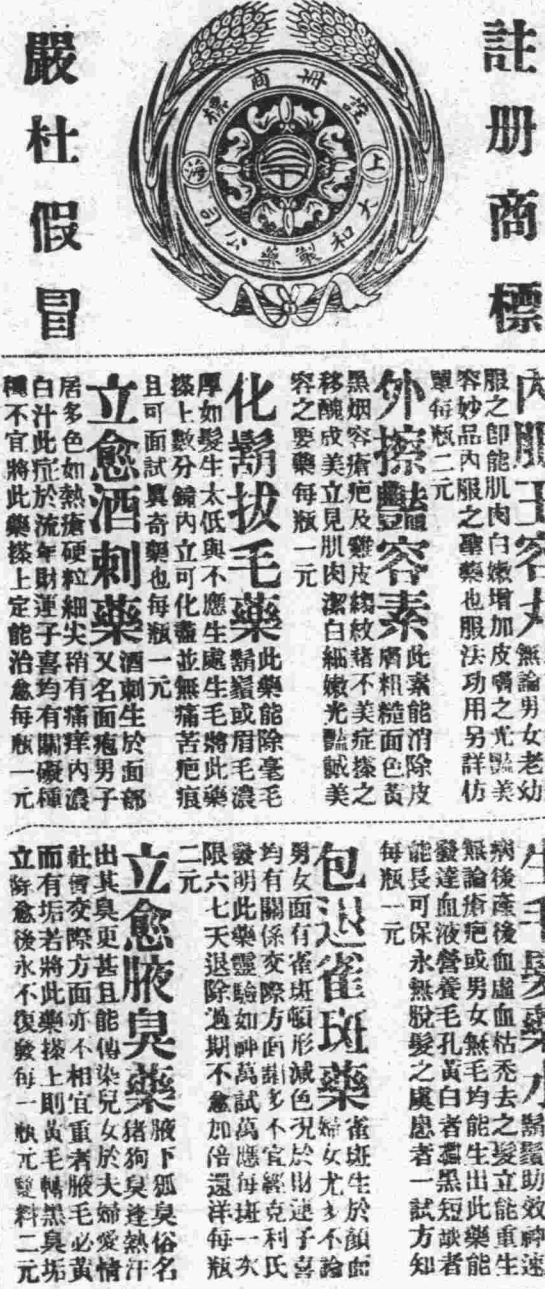 註册商標
嚴杜假冒
註冊商標
上海
大和製藥公司
內服玉容丸
無論男女老幼
服之即能肌肉白嫩增加皮膚之光豔美
容妙品內服之聖藥也服法功用另詳仿
單每瓶二元
外擦豔容素
此素能消除皮
膚粗糙面色黃
黑烟容瘡疤及雞皮縐紋諸不美症搽之
移醜成美立見肌肉潔白細嫩光豔誠美
容之要藥每瓶一元
化鬍拔毛藥
此藥能除毫毛
鬍鬚或眉毛濃
厚如髮生太低與不應生處生毛將此藥
搽上數分鐘內立可化盡並無痛苦疤痕
且可面試眞奇藥也每瓶一元
立愈酒刺藥
酒刺生於面部
又名面疱男子
居多色如熱瘡硬粒細尖稍有痛痒內濃
白汁此症於流年財運子喜均有關礙種
種不宜將此藥搽上定能治愈每瓶一元
生毛髮藥水
鬍鬚助效神速
病後產後血虛血枯禿去之髮立能重生
無論瘡疤或男女無毛均能生出此藥能
發達血液營養毛孔黃白者轉黑短識者
能長可保永無脫髮之虞患者一試方知
每瓶一元
包退雀斑藥
雀斑生於顏面
婦女尤多不論
男女面有雀斑頓形減色况於財運子喜
均有關係交際方面諸多不宜經克利氏
發明此藥靈驗如神萬試萬應每斑一次
限六七天退除過期不愈加倍還洋每瓶
二元
立愈腋臭藥
腋下狐臭俗名
猪狗臭逢熱汗
出其臭更甚且能傳染兒女於夫婦愛情
社會交際方面亦不相宜重者腋毛必黃
而有垢若將此藥搽上則黃毛轉黑臭垢
立除愈後永不復發每一瓶元雙料二元